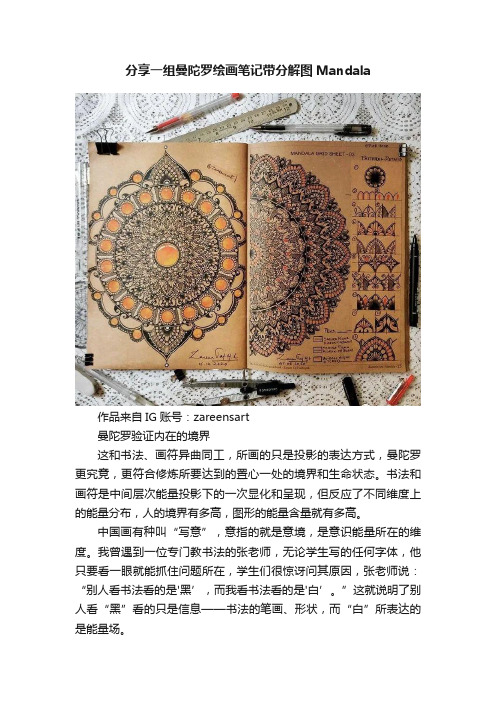 分享一组曼陀罗绘画笔记带分解图Mandala
MANDALA GRID SHEET - 03
作品来自IG 账号：zareensart
曼陀罗验证内在的境界
这和书法、画符异曲同工，所画的只是投影的表达方式，曼陀罗
更究竟，更符合修炼所要达到的置心一处的境界和生命状态。书法和
画符是中间层次能量投影下的一次显化和呈现，但反应了不同维度上
的能量分布，人的境界有多高，图形的能量含量就有多高。
中国画有种叫“写意”，意指的就是意境，是意识能量所在的维
度。我曾遇到一位专门教书法的张老师，无论学生写的任何字体，他
只要看一眼就能抓住问题所在，学生们很惊讶问其原因，张老师说：
“别人看书法看的是'黑’，而我看书法看的是'白’。”这就说明了别
人看“黑”看的只是信息——书法的笔画、形状，而“白”所表达的
是能量场。